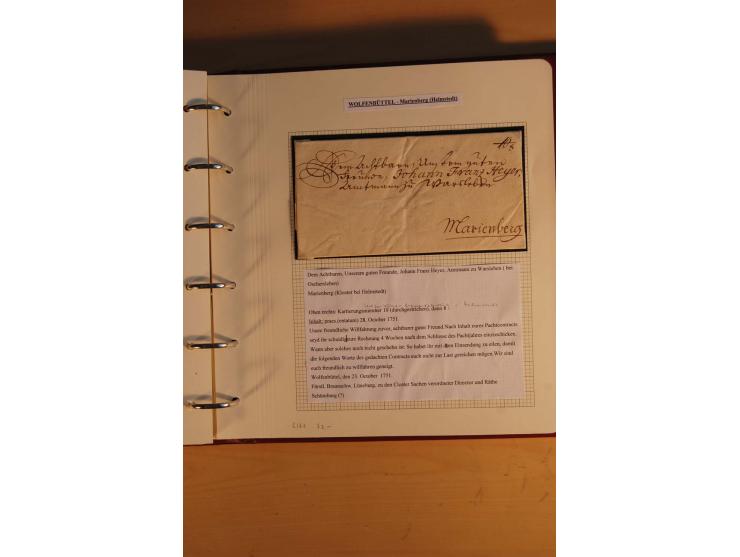 WOLFENBÜTTEL - Marienberg (Helmstedt)
Dem Achtbarn, Unserem guten
Freunde, Johann Franz Heyer,
Amtmann zu Warsleben
Marienberg
Dem Achtbaren, Unserem guten Freunde, Johann Franz Heyer, Amtmann zu Warsleben ( bei
Oschersleben)
Marienberg (Kloster bei Helmstedt)
Oben rechts: Kartierungsnummer 10 (durchgestrichen), dann 8
Inhalt: prues (entatum) 28. October 1751.
Unsre freundliche Willfahrung zuvor, achtbarer guter Freund.Nach Inhalt eures Pachtcontracts
seyd ihr schuldig eure Rechnung 4 Wochen nach dem Schlusse des Pachtjahres einzuschicken.
Wann aber solches noch nicht geschehn ist: So habet ihr mit dem Einsendung zu eilen, damit
die folgenden Worte des gedachten Contracts euch nicht zur Last gereichen mögen.Wir sind
euch freundlich zu willfahren geneigt.
Wolfenbüttel, den 23. October 1751.
Fürstl. Braunschw. Lüneburg. zu den Closter Sachen verordneter Director und Räthe
Schluuburg (?)